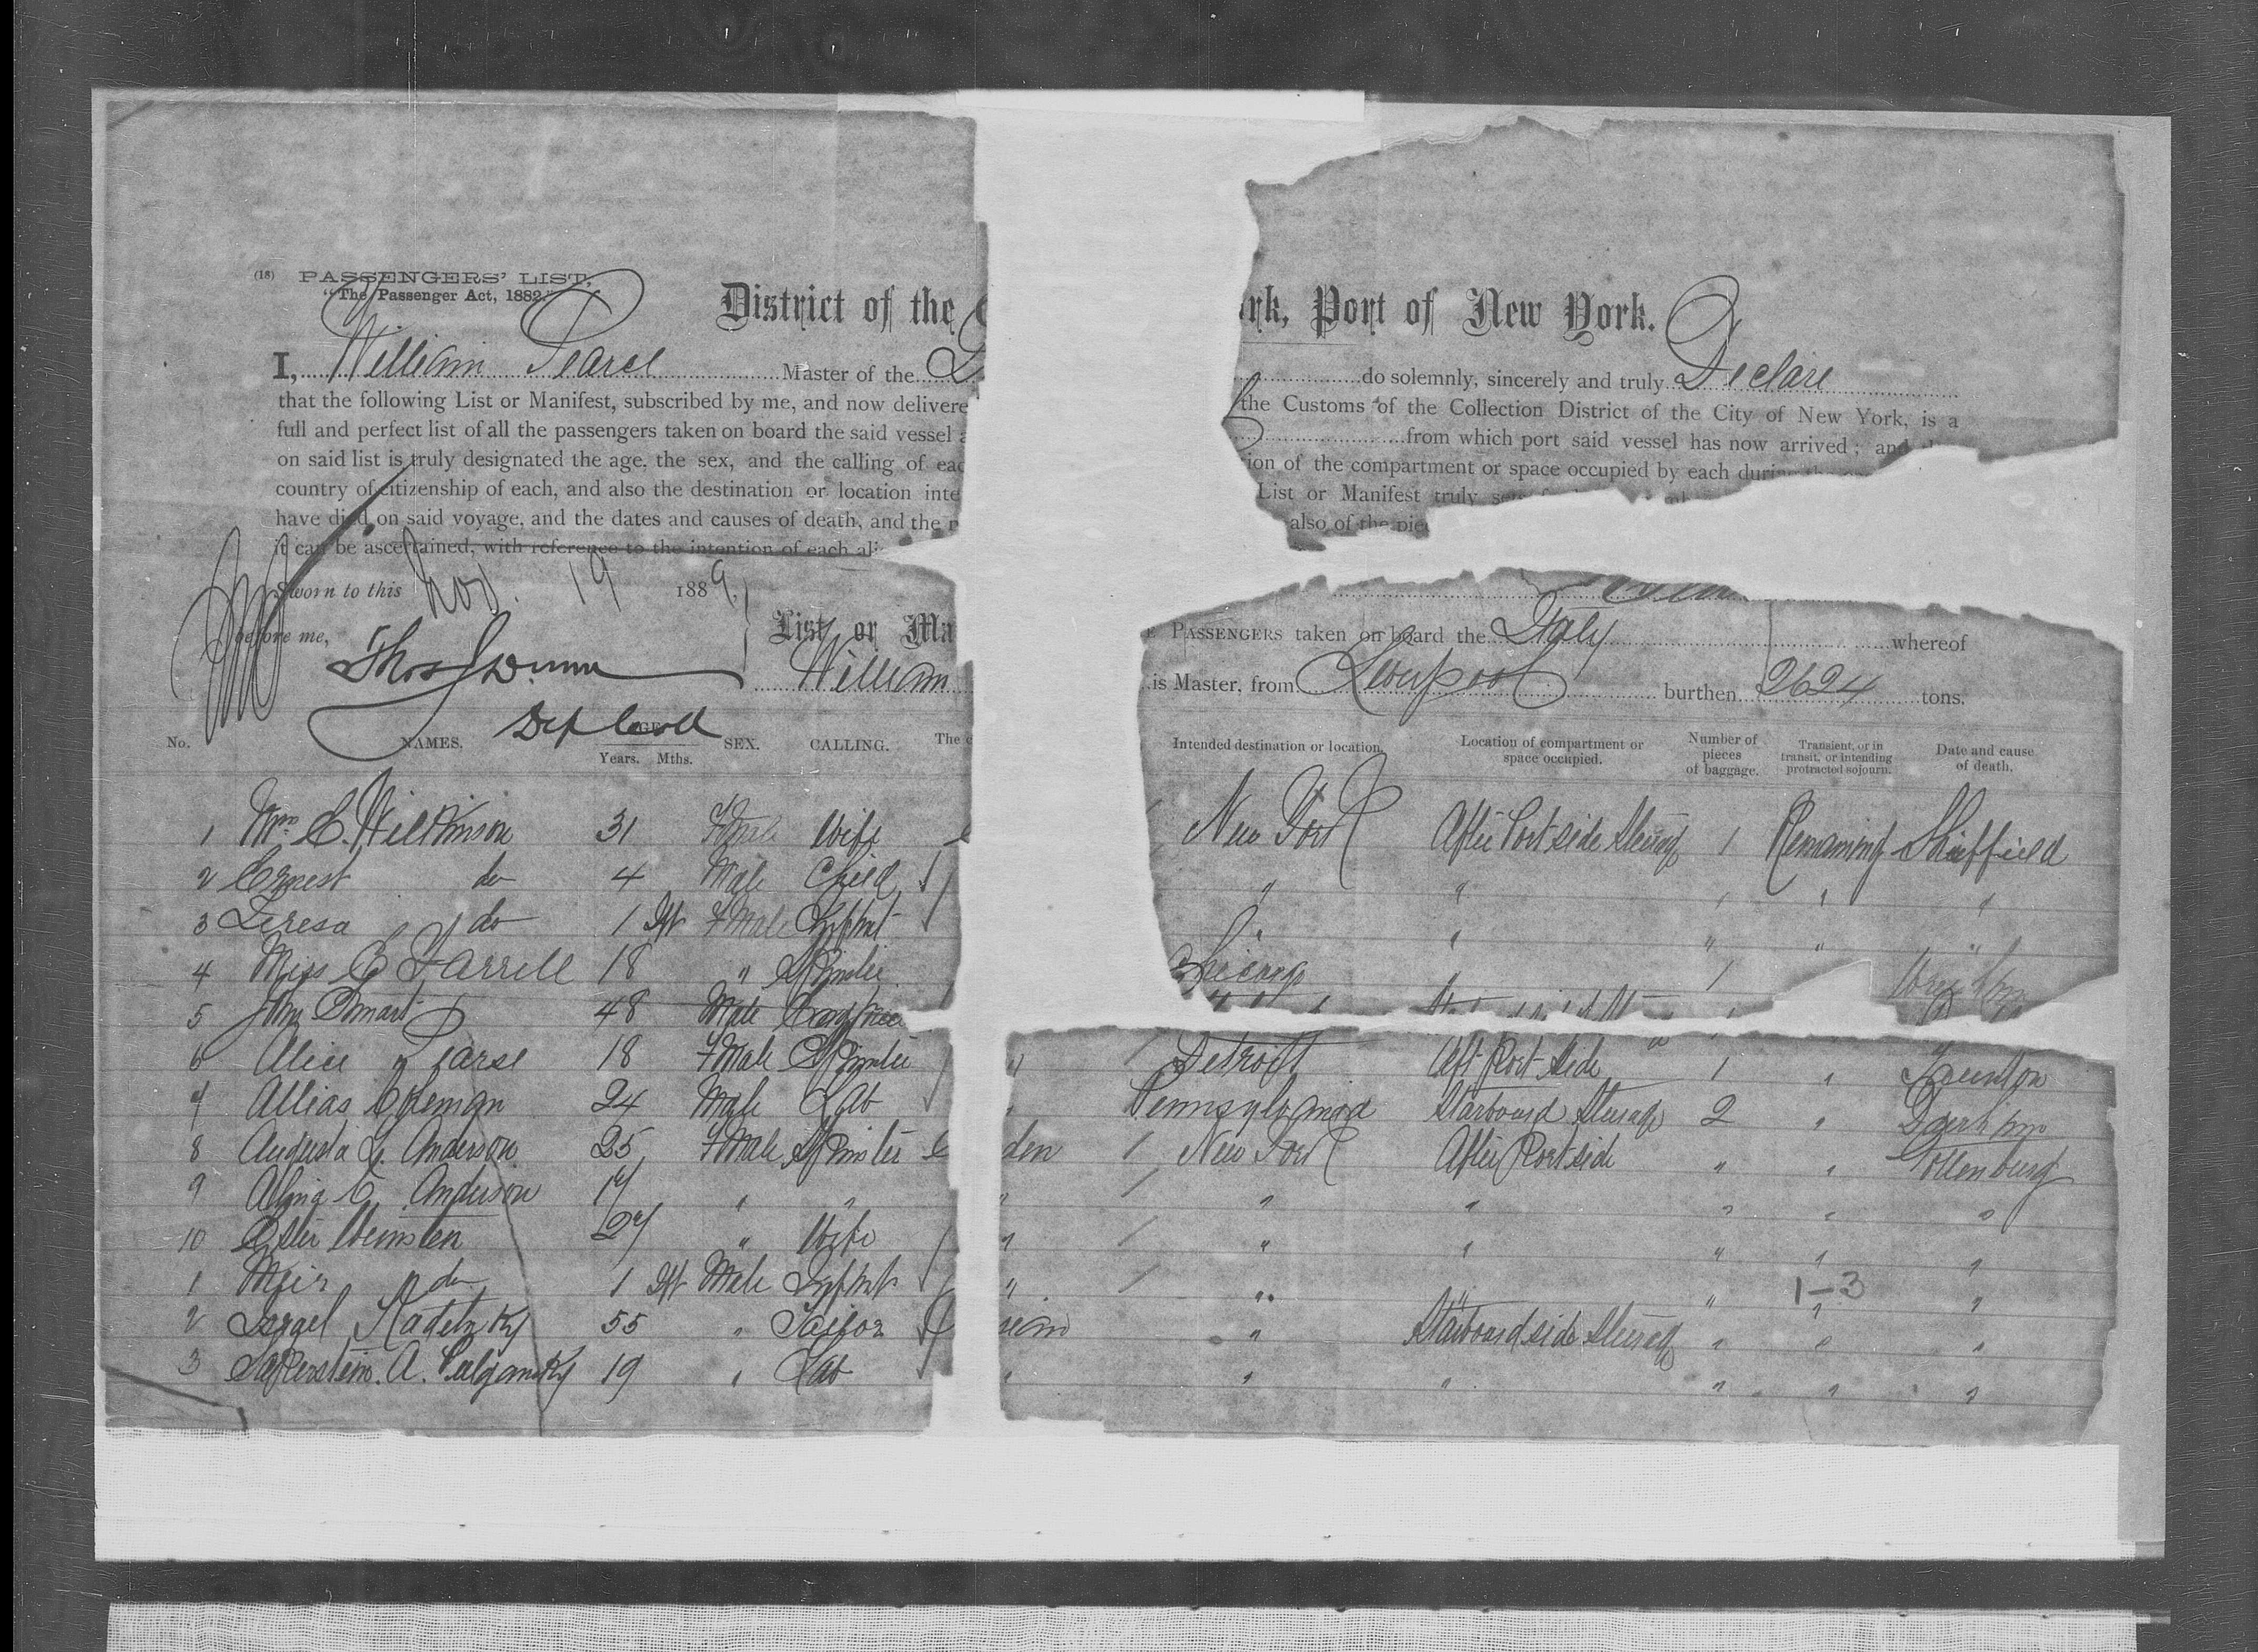 (18) PASSENGERS' LIST,
"The Passenger Act, 1882."
District of the C rk, Port of New York.
I, William Pearce Master of the do solemnly, sincerely and truly Declare
that the following List or Manifest, subscribed by me, and now delivere the Customs of the Collection District of the City of New York, is a
full and perfect list of all the passengers taken on board the said vessel from which port said vessel has now arrived; and
on said list is truly designated the age, the sex, and the calling of eac ion of the compartment or space occupied by each during
country of citizenship of each, and also the destination or location inte List or Manifest truly
have died on said voyage, and the dates and causes of death, and the also of the pie
it can be ascertained, with reference to the intention of each ali
Sworn to this Nov. 19 1889.
before me, List or Ma E PASSENGERS taken on board the Italy whereof
Thos J Dunn William is Master, from Liverpool burthen 2624 tons.
Dep Coll
No. NAMES. AGE SEX. CALLING. The c Intended destination or location. Location of compartment or space occupied. Number of pieces of baggage. Transient, or in transit, or intending protracted sojourn. Date and cause of death.
Years. Mths.
1 C. Wilkinson 31 Female Wife New York After Port side Steerage 1 Remaining Sheffield
2 Ernest do 4 Male Child " " " " "
3 Teresa do 1 Inft Female Infant " " " " "
4 Miss E Farrell 18 " Spinster Chicago " 1
5 John 48 Male
6 Alice Pearse 18 Female Spinster " Detroit Aft Port Side 1 " Taunton
7 Allias Coleman 24 Male Lab " Pennsylvania Starboard Steerage 2 "
8 Augusta Anderson 25 Female Spinster den New York After Port side " " Gottenburg
9 Anderson 17 " " " " " " " "
10 27 " Wife " " " " " "
1 Meir do 1 Inft Male Infant " " " " " "
1-3
2 Israel 55 " Tailor " Starboard side Steerage " " "
3 A. 19 " Lab " " " " " "